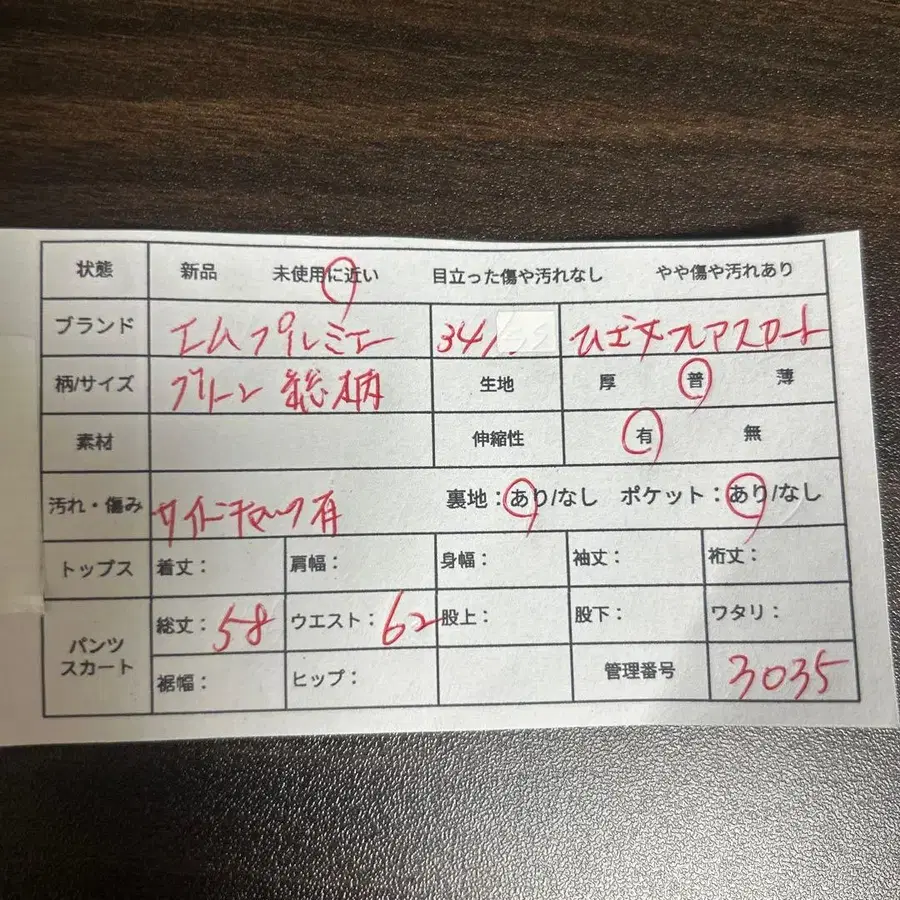 状態 新品 未使用に近い 目立った傷や汚れなし やや傷や汚れあり
ブランド エムプルミエ 34/ フレアスカート
柄/サイズ グリーン 総柄 生地 厚 普 薄
素材 伸縮性 有 無
汚れ・傷み サイドチャック有 裏地：あり/なし ポケット：あり/なし
トップス 着丈： 肩幅： 身幅： 袖丈： 裄丈：
パンツ スカート 総丈：58 ウエスト：62 股上： 股下： ワタリ：
裾幅： ヒップ： 管理番号 3035